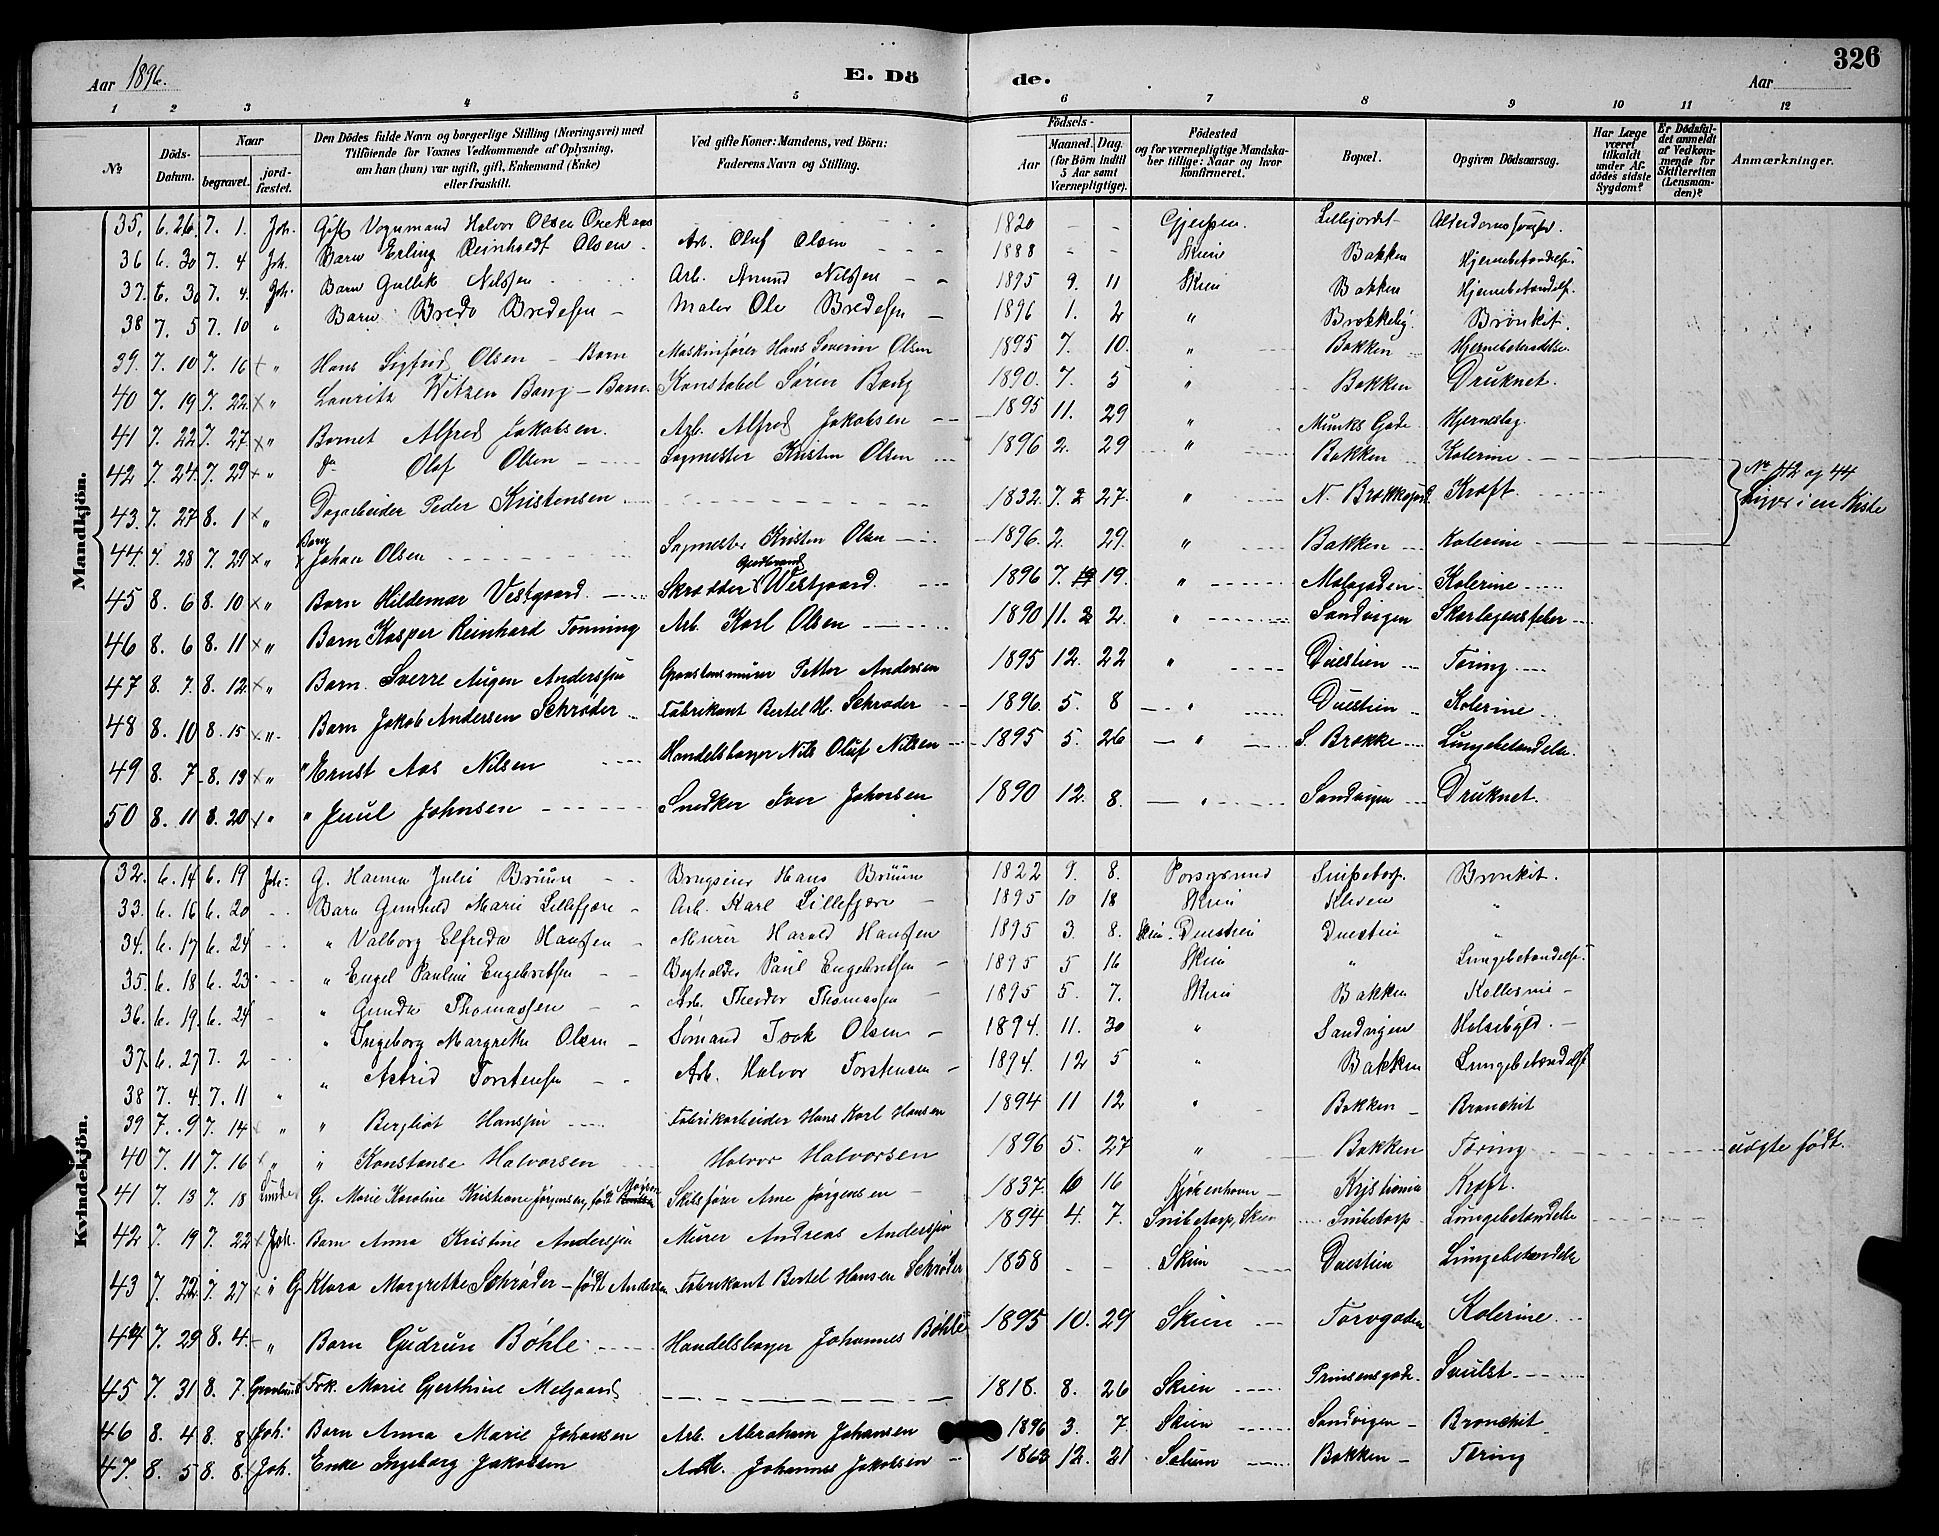 Aar 1896.
E. Dö
de.
Aar
326
1 2 3 4 5 6 7 8 9 10 11 12
№
Döds-Datum.
Naar
begravet.
jord-fæstet.
Den Dödes fulde Navn og borgerlige Stilling (Næringsvei) med
Tilföiende for Voxnes Vedkommende af Oplysning,
om han (hun) var ugift, gift, Enkemand (Enke)
eller fraskilt.
Ved gifte Koner: Mandens, ved Börn:
Faderens Navn og Stilling.
Födsels-
Aar
Maaned. Dag.
(for Börn indtil
5 Aar samt
Værnepligtige).
Födested
og for værnepligtige Mandska-
ber tillige: Naar og hvor
konfirmeret.
Bopæl.
Opgiven Dödsaarsag.
Har Læge
været
tilkaldt
under Af-
dödes sidste
Sygdom?
Er Dödsfal-
det anmeldt
af Vedkom-
mende for
Skifteretten
(Lensman-
den)?
Anmærkninger.
Mandkjön.
35, 6. 26. 7. 1. Joh. Gift Vognmand Halvor Olsen - 1820 - - Gjerpen Lillejordet
36 6. 30 7. 4 Joh. Barn Erling Reinholdt Olsen - Arb. Oluf Olsen - 1888 - - Skien Bakken Hjernebetændelse.
37. 6. 30 7. 4. Joh. Barn Gullik Nilssen Arb. Amund Nilssen - 1895 9. 11 Skien Bakken Hjernebetændelse.
38 7. 5 7. 10 " Barn Brede Bredesen - Maler Ole Bredesen - 1896 1. 2 " Brekkeby. Bronkit.
39. 7. 10 7. 16 + " Hans Sigfrid Olsen - Barn Maskinfører Hans Severin Olsen 1895 7. 10. " Bakken Hjernebetændelse.
40 7. 19 7. 22 × " Lauritz Witzen Bang - Barn. Konstabel Søren Bang 1890. 7. 5 " Bakken Druknet.
41 7. 22 7. 27 × " Barnet Alfred Jakobsen. Arb. Alfred Jakobsen - 1895 11. 29 " Munks Gade Hjerneslag.
42 7. 24. 7. 29 × " do Olaf Olsen - Sagmester Kristen Olsen 1896 2. 29 " Bakken Kolerine
№ 42 og 44
43. 7. 27 8. 1 × " Dagarbeider Peder Kristensen 1832. 7. 2 27. " N. Brekkejord Kræft.
Ligger i en Kiste
44. 7. 28 7. 29 × " Barn Johan Olsen Sagmester Kristen Olsen - 1896. 2. 29. " Bakken Kolerine
45 8. 6 8. 10 × " Barn Hildemar Vestgaard Skrædder Gudbrand Westgaard 1896 7. 19. " Kolerine
46 8. 6 8. 11 × " Barn Kasper Reinhard Tonning Arb. Karl Olsen 1890 11. 2 2. " Sandvigen Skarlagensfeber
47 8. 7. 8. 12 × " Barn. Sverre Augen Anderssen Petter Andersen 1895 12. 22 " Duestien Tæring
48 8. 10 8. 15 × " Barn Jakob Andersen Schrøder Fabrikant Bertel H. Schrøder 1896. 5. 8 " Duestien Kolerine
49 8. 7 8. 13 × " " Ernst Aas Nilsen Handelsborger Nils Oluf Nilsen 1895 5. 26 " S. Brække Lungebetændelse
50 8. 11 8. 20 × " " Juul Johnsen Snedker Iver Johnsen 1890 12. 8. " Sandvigen Druknet.
Kvindekjön.
32. 6. 14 6. 19 Joh. G. Hanna Julie Bruun Hans Bruun 1822 9. 8. Porsgrund Snibetorp. Bronkit.
33. 6. 16 6. 20 - Barn Gunhild Marie Lillefjære - Arb. Karl Lillefjære - 1895 10 18 Skien Kleven "
34. 6. 17 6. 24 - " Valborg Elfreda Hanssen - Murer Harald Hanssen 1895 3. 8. Skien Duestien Duestien "
35. 6. 18 6. 23 - " Engel Pauline Engebretsen - Paul Engebretsen - 1895 5 16 Skien " Lungebetændelse.
36. 6. 19. 6. 24 - " Gunda Thomassen - Arb. Theodor Thomassen - 1895 5. 7. Skien Bakken
37. 6. 27 7. 2 - " Ingeborg Margrethe Olsen - Sømand Isak Olsen - 1894. 11. 30 " Sandvigen Halsebyld.
38 7. 4. 7. 11 " " Astrid Torstensen - Arb. Halvor Torstensen - 1894. 12 5 " Bakken Lungebetændelse
39 7. 9 7. 14 × " " Bergliot Hanssen Fabrikarbeider Hans Karl Hansen 1894 11 12 " Bakken Bronchit
40 7. 11 7. 16 × " " Konstanse Halvorsen Halvor Halvorsen 1896 5. 27 " Bakken Tæring uægte født.
41 7. 13 7. 18 Lunde G. Marie Karoline Kristiane Jørgensen, født Skibsfører Arne Jørgensen 1837. 6 16 Kjøbenhavn Kristiania Kræft.
42 7. 19 7. 22 × Joh. Barn Anna Kristine Anderssen Murer Andreas Anderssen 1894 4. 7. Snibetorp, Skien Snibetorp Lungebetændelse
43 7. 22 7. 27 × " G. Klara Margrethe Schrøder - født Andersen Fabrikant Bertel Hansen Schrøder 1858 - - Skien Duestien Lungebetændelse
44 7. 29 8. 4. " Barn Gudrun Bøhle Handelsborger Johannes Bøhle 1895 10. 29 Skien Torvgaden Kolerine
45 7. 31 8. 7. Frk. Marie Gjerthine Melgaard 1818. 8. 26 Skien Prinsensgade. Svulst
46 8. 4 8. 8 Joh. Barn Anna Marie Johansen Arb. Abraham Johansen 1896 3. 7. Skien Sandvigen Bronchit
47. 8. 5 8. 8. Joh. Enke Ingeborg Jakobsen Arb. Johannes Jakobsen 1862 12. 21 Solum Bakken Tæring